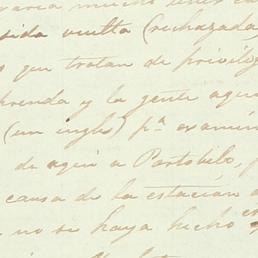 mucho
sido vuelta (rechazada
s que tratan de privileg
prenda y la gente aqui
(un inglés) pª exámin
de aquí a Portobelo,
causa de la estación
no se haya hecho